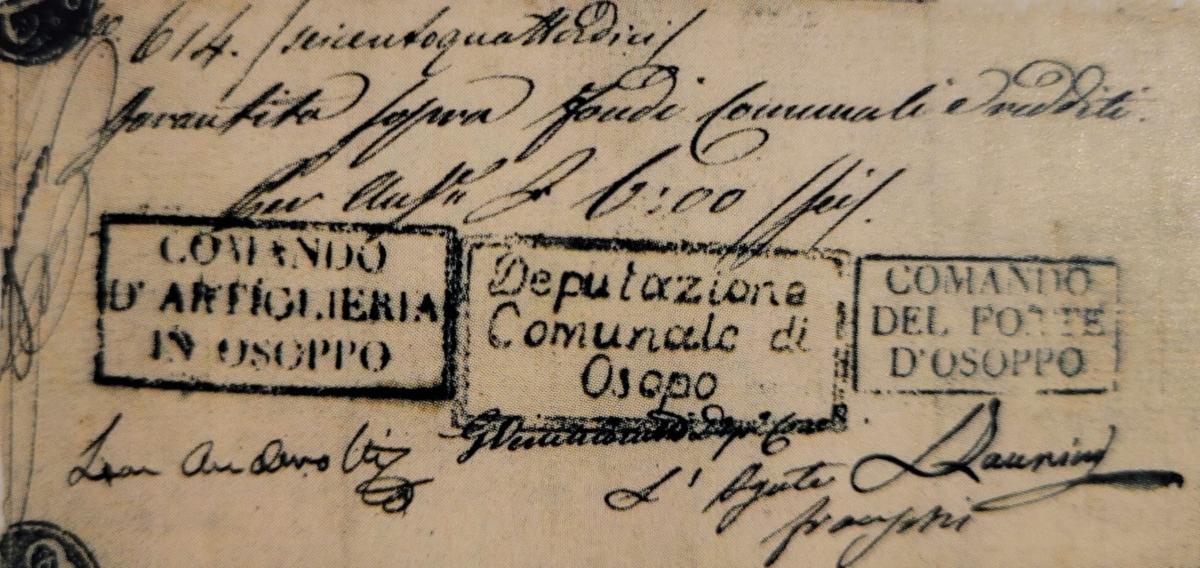 No. 614. /seicentoquattordici/
Garantita sopra fondi Comunali e redditi.
Per Aus.e L 6:00 /sei/.
COMANDO
D'ARTIGLIERIA
IN OSOPPO
Deputazione
Comunale di
Osopo
COMANDO
DEL FORTE
D'OSOPPO
L'Agente